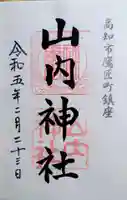 高知市鷹匠町鎮座
山内神社
令和五年二月二十三日